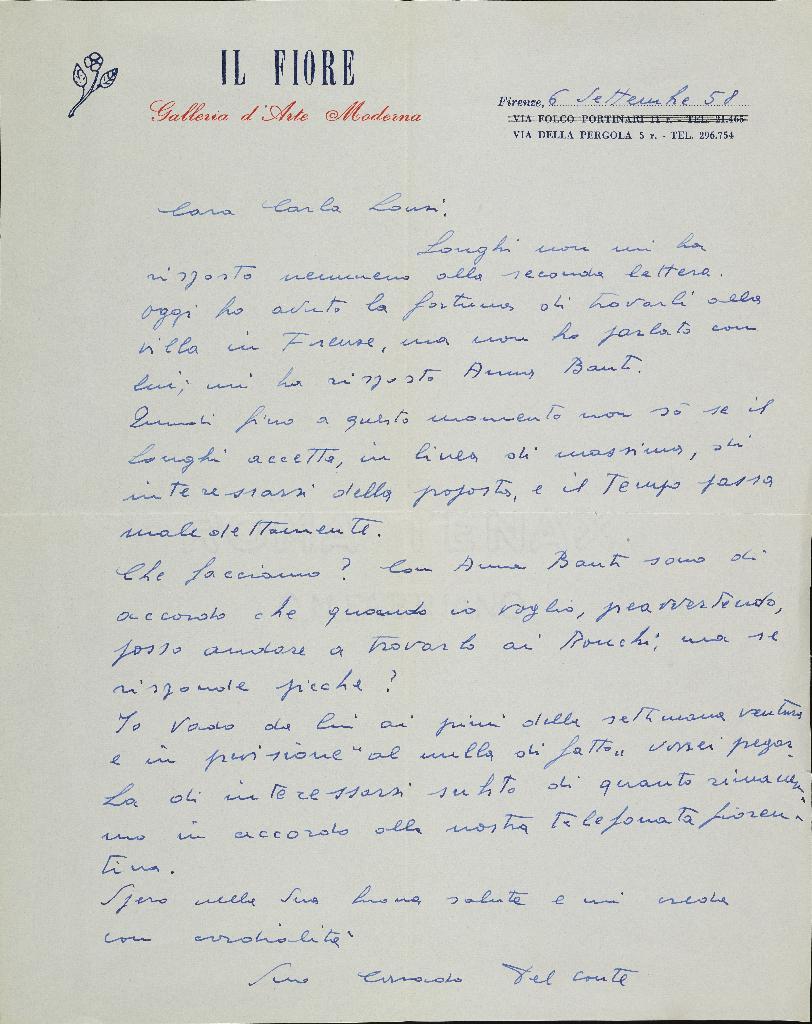 IL FIORE
Galleria d'Arte Moderna
Firenze, 6 Settembre 58
VIA FOLCO PORTINARI 11 r. - TEL. 21.465
VIA DELLA PERGOLA 5 r. - TEL. 296.754
Cara Carla Lonzi,
Longhi non mi ha
risposto nemmeno alla seconda lettera.
Oggi ho avuto la fortuna di trovarli alla
villa in Firenze, ma non ho parlato con
lui; mi ha risposto Anna Banti.
Quindi fino a questo momento non sò se il
Longhi accetta, in linea di massima, di
interessarsi della proposta, e il tempo passa
maledettamente.
Che facciamo? Con Anna Banti sono di
accordo che quando io voglio, preavvertendo,
posso andare a trovarlo ai Ronchi; ma se
risponde picche?
Io vado da lui ai primi della settimana ventura
e in previsione "al nulla di fatto" vorrei pregar-
La di interessarsi subito di quanto rimanem-
mo in accordo alla nostra telefonata fioren-
tina.
Spero nella Sua buona salute e mi creda
con cordialità
Suo Corrado Del Conte